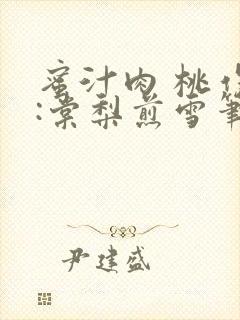 蜜汁肉桃作
:棠梨煎雪筆
尹建盛